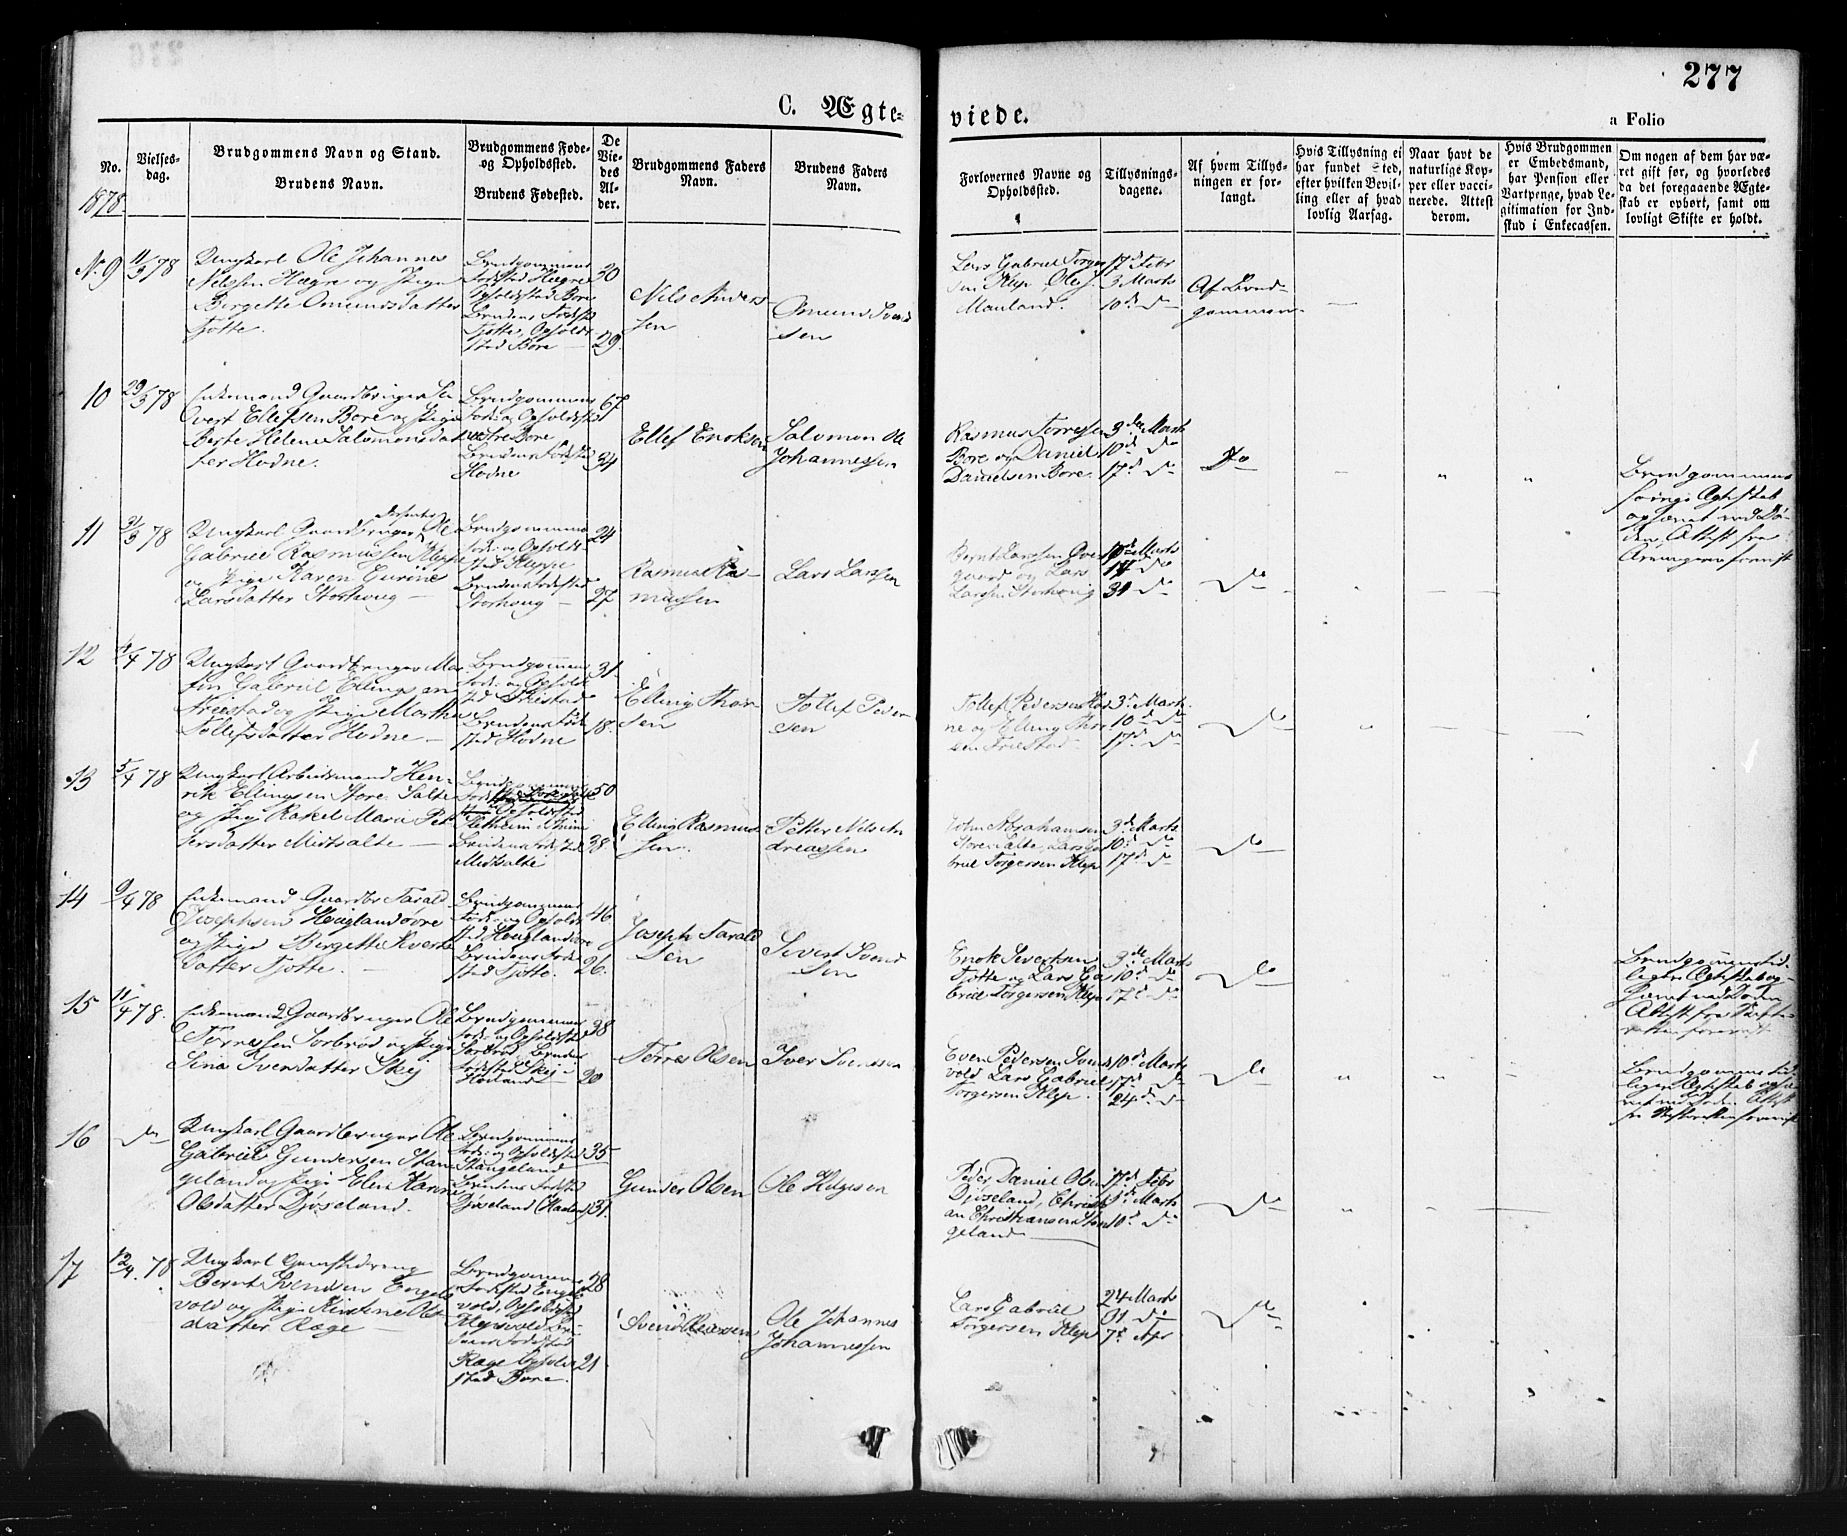 277
C. Ægte-
viede.
a Folio
No.
Vielses-
dag.
Brudgommens Navn og Stand.
Brudens Navn.
Brudgommens Føde-
og Opholdssted.
Brudens Fødested.
De
Vie-
des
Al-
der.
Brudgommens Faders
Navn.
Brudens Faders
Navn.
Forlovernes Navne og
Opholdssted.
Tillysnings-
dagene.
Af hvem Tillys-
ningen er for-
langt.
Hvis Tillysning ei
har fundet Sted,
efter hvilken Bevil-
ling eller af hvad
lovlig Aarsag.
Naar havt de
naturlige Kop-
per eller vacci-
nerede. Attest
derom.
Hvis Brudgommen
er Embedsmand,
har Pension eller
Vartpenge, hvad Le-
gitimation for Ind-
skud i Enkecassen.
Om nogen af dem har væ-
ret gift før, og hvorledes
da det foregaaende Ægte-
skab er ophørt, samt om
lovligt Skifte er holdt.
1878.
No 9
11/3 78
Ungkarl Ole Johannes
Nilssen Hægre og Pige
Bergette Omundsdatter
Tjøtte.
Brudgommens
Fødested Hægre
Opholdssted Bore
Brudens Fødested
Tjøtte, Ophold-
sted Bore
30
29.
Nils Anders-
sen
Omund Svend-
sen
Lars Gabriel Torger-
sen Klep, Ole J.
Mauland.
17d Febr
3 Marts
10d do
Af Brud-
gommen
10
29/3 78
Enkemand Gaardbruger Si-
vert Ellefsen Bore og Pige
Berte Helene Salomonsdat-
ter Hodne.
Brudgommens
Føde- og Opholdssted
Bore
Brudens Fødested
Hodne
67
34
Ellef Enoksen
Salomon Ole
Johannessen
Rasmus Torressen
Bore og Daniel
Danielsen Bore.
3die Marts
10d do
17d do
Do
Brudgommens
forrige Ægteskab
ophævet ved Dø-
den, Attest fra
11
31/3 78
Ungkarl Gaardbruger Ole
Gabriel Rasmussen Kleppe
og Pige Karen Gurine
Larsdatter Storhoug
Brudgommens
Føde- og Ophold-
sted Kleppe
Brudens Fødested
Storhoug
24
27
Rasmus Ras-
mussen
Lars Larssen
Bernt Larssen Øver-
gaard og Lars
Larssen Storhoug
10de Marts
17 do
31 do
do
12
78
Ungkarl Gaardbruger Mar-
tin Gabriel Ellingsen
Friestad og Pige Martha
Tollefsdatter Hodne
Brudgommens
Føde- og Ophold-
sted Friestad
Brudens Føde-
sted Hodne
31.
18.
Elling Thor-
sen
Tollef Peder-
sen
Tollef Pedersen Hod-
ne og Elling Thor-
sen Friestad
3d Marts
10d do
17d do
do
13
5/4 78
Ungkarl Arbeidsmand Hen-
rik Ellingsen Store Salte
og Pige Rakel Maria Pet-
tersdatter Midtsalte
Brudgommens
Opholdssted
Brudens Fødested
Midtsalte
50
38
Elling Rasmus-
sen.
Petter Nils An-
dreassen
John Abrahamsen
Store Salte, Lars Ga-
briel Torgersen Klep
3d Marts
10d do
17d do
do
14
9/4 78
Enkemand Gaardbr Tarald
Josephsen Houglandøvre
og Pige Bergette Siverts-
datter Tjøtte.
Brudgommens
Føde- og Ophold-
sted Houglandøvre
Brudens Føde-
sted Tjøtte.
46
26.
Joseph Tarald-
sen
Sivert Svend-
sen
Enok Sivertsen
Tjøtte og Lars Ga-
briel Torgersen Klep
3de Marts
10d do
17d do
do
Brudgommens tid-
ligere Ægteskab op-
hævet ved Døden
Attest fra Skifte-
retten forevist
15
11/4 78.
Enkemand Gaardbruger Ole
Torressen Sørbrød og Pige
Sina Iversdatter Skej
Brudgommens
Føde- og Opholdssted
Sørbrød, Brudens
Fødested Skej
Høiland
38
20
Torres Olsen
Iver Svensen
Even Pedersen Sand-
vold Lars Gabriel
Torgersen Klep.
10d Marts
17d do
24d do
do
Brudgommens tid-
ligere Ægteskab ophæ-
vet ved Døden Attest
fra Skifteretten forevist
16
do
Ungkarl Gaardbruger Ole
Gabriel Gundersen Stan-
geland og Pige Elen Hanne
Olsdatter Djøseland.
Brudgommens
Føde- og Opholdssted
Stangeland
Brudens Fødested
Djøseland
35
31.
Gunder Olsen
Ole Helgesen
Peder Daniel Olsen
Djøseland, Christi-
an Christiansen Stan-
geland
17d Febr
3d Marts
10d do
do
17
12/4 78
Ungkarl
Bernt Svendsen Engels-
vold og Pige Kirstine Ols-
datter Ræge
Brudgommens
Fødested Engels-
vold, Opholdssted
Klepsvold Bru-
dens Fødested
Ræge Ophold-
sted Bore.
28
21
Svend
Ole Johannes
Johannessen
Lars Gabriel
Torgersen Klep
24 Marts
31 do
7d Apr
do